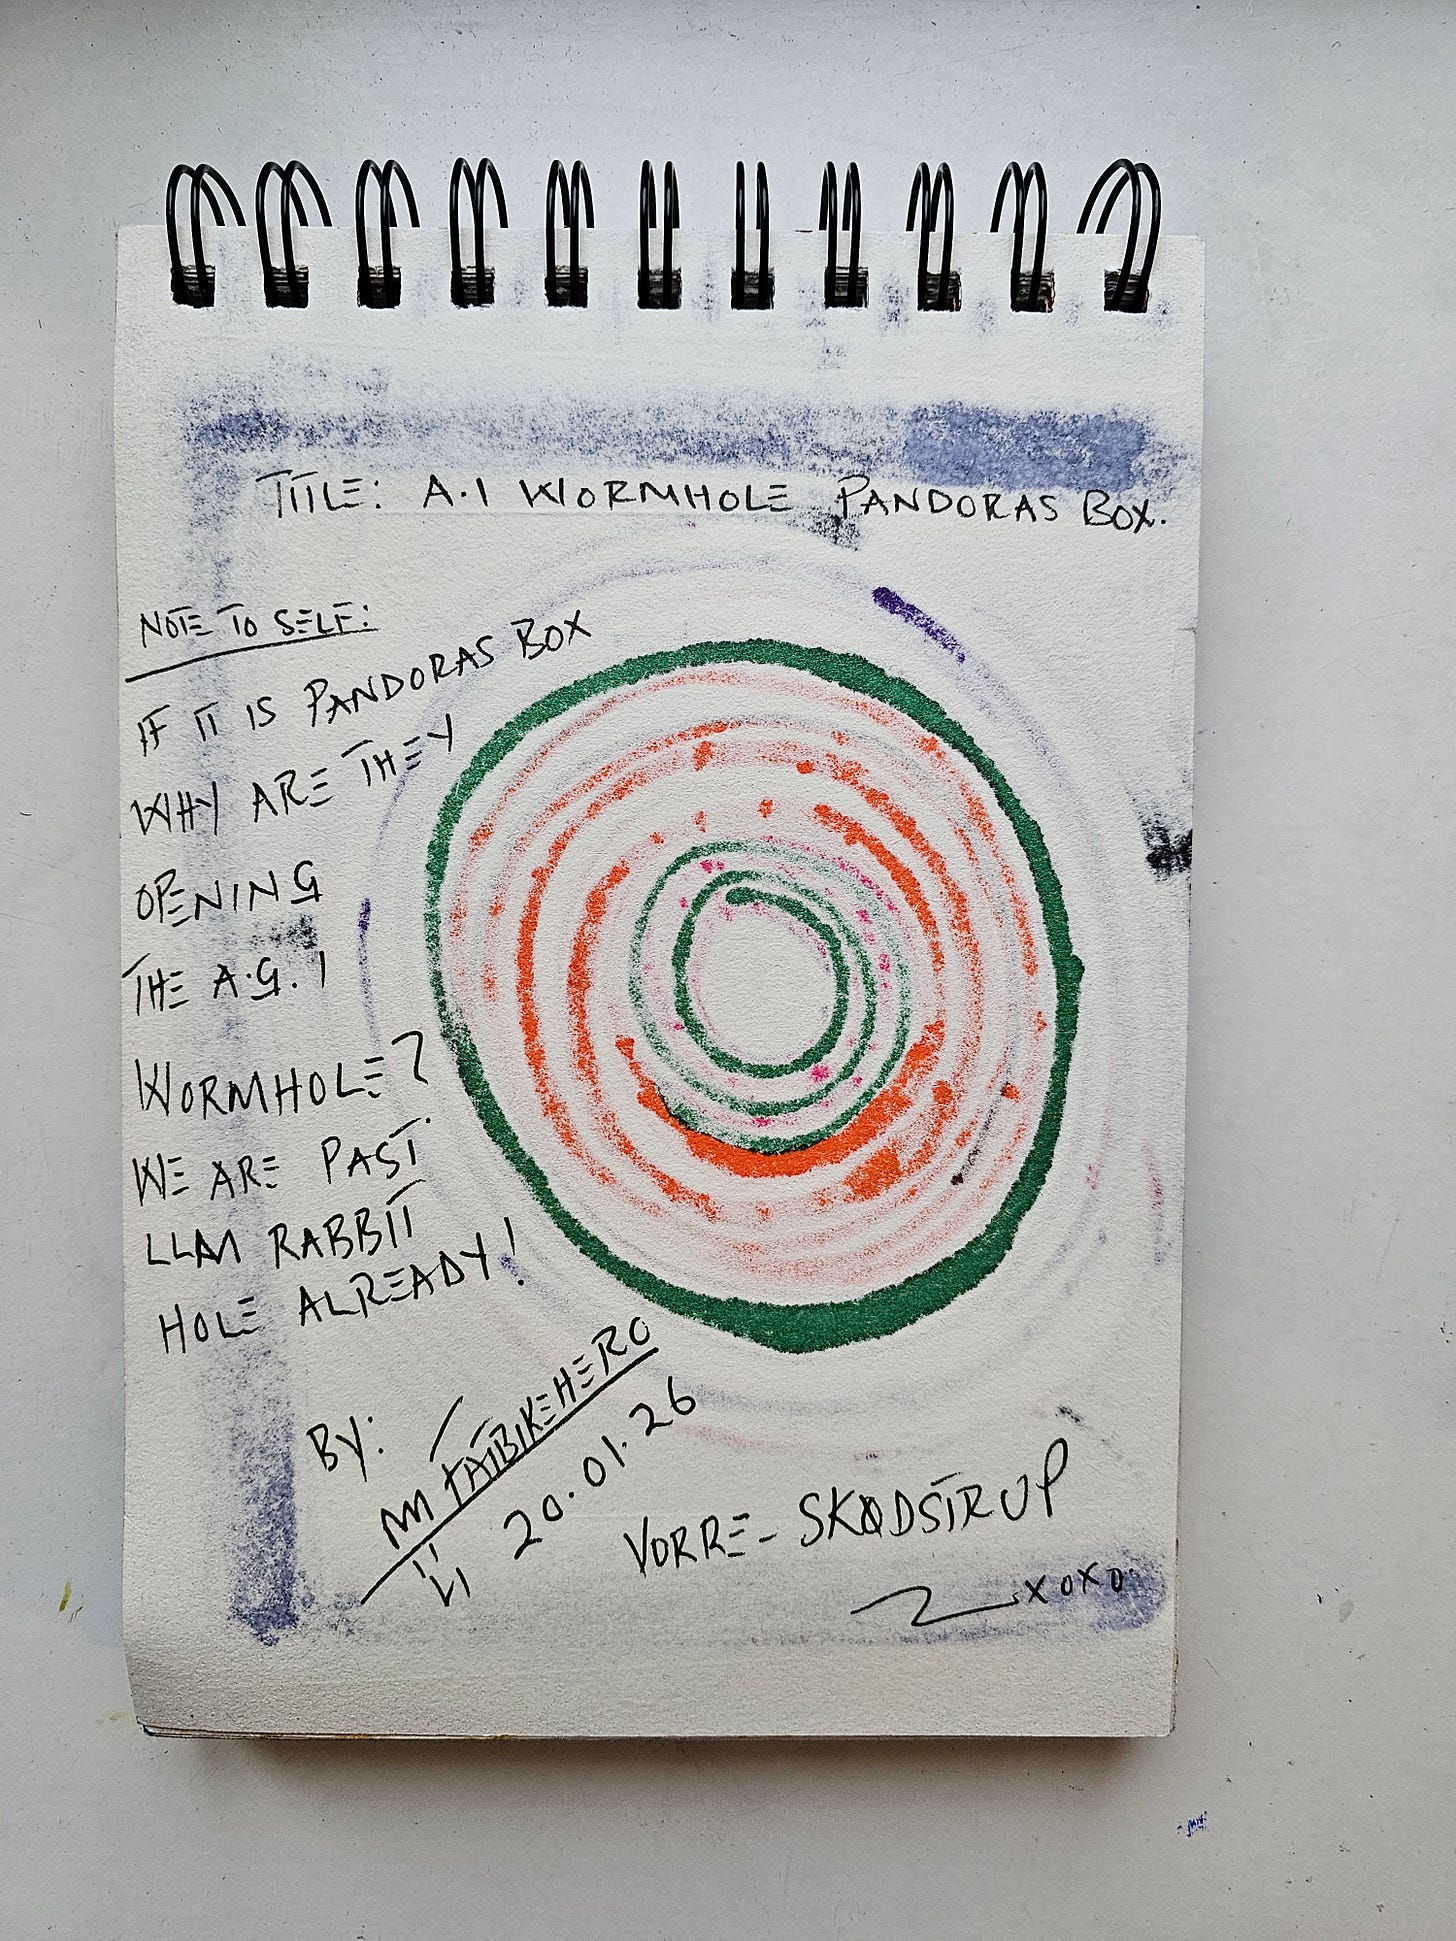 TITLE: A.I WORMHOLE PANDORAS BOX.
NOTE TO SELF:
IF IT IS PANDORAS BOX
WHY ARE THEY
OPENING
THE A.G.I
WORMHOLE?
WE ARE PAST
LLM RABBIT
HOLE ALREADY!
BY:
FATBIKEHERO
20.01.26
VORRE- SKØDSTRUP
XOXO